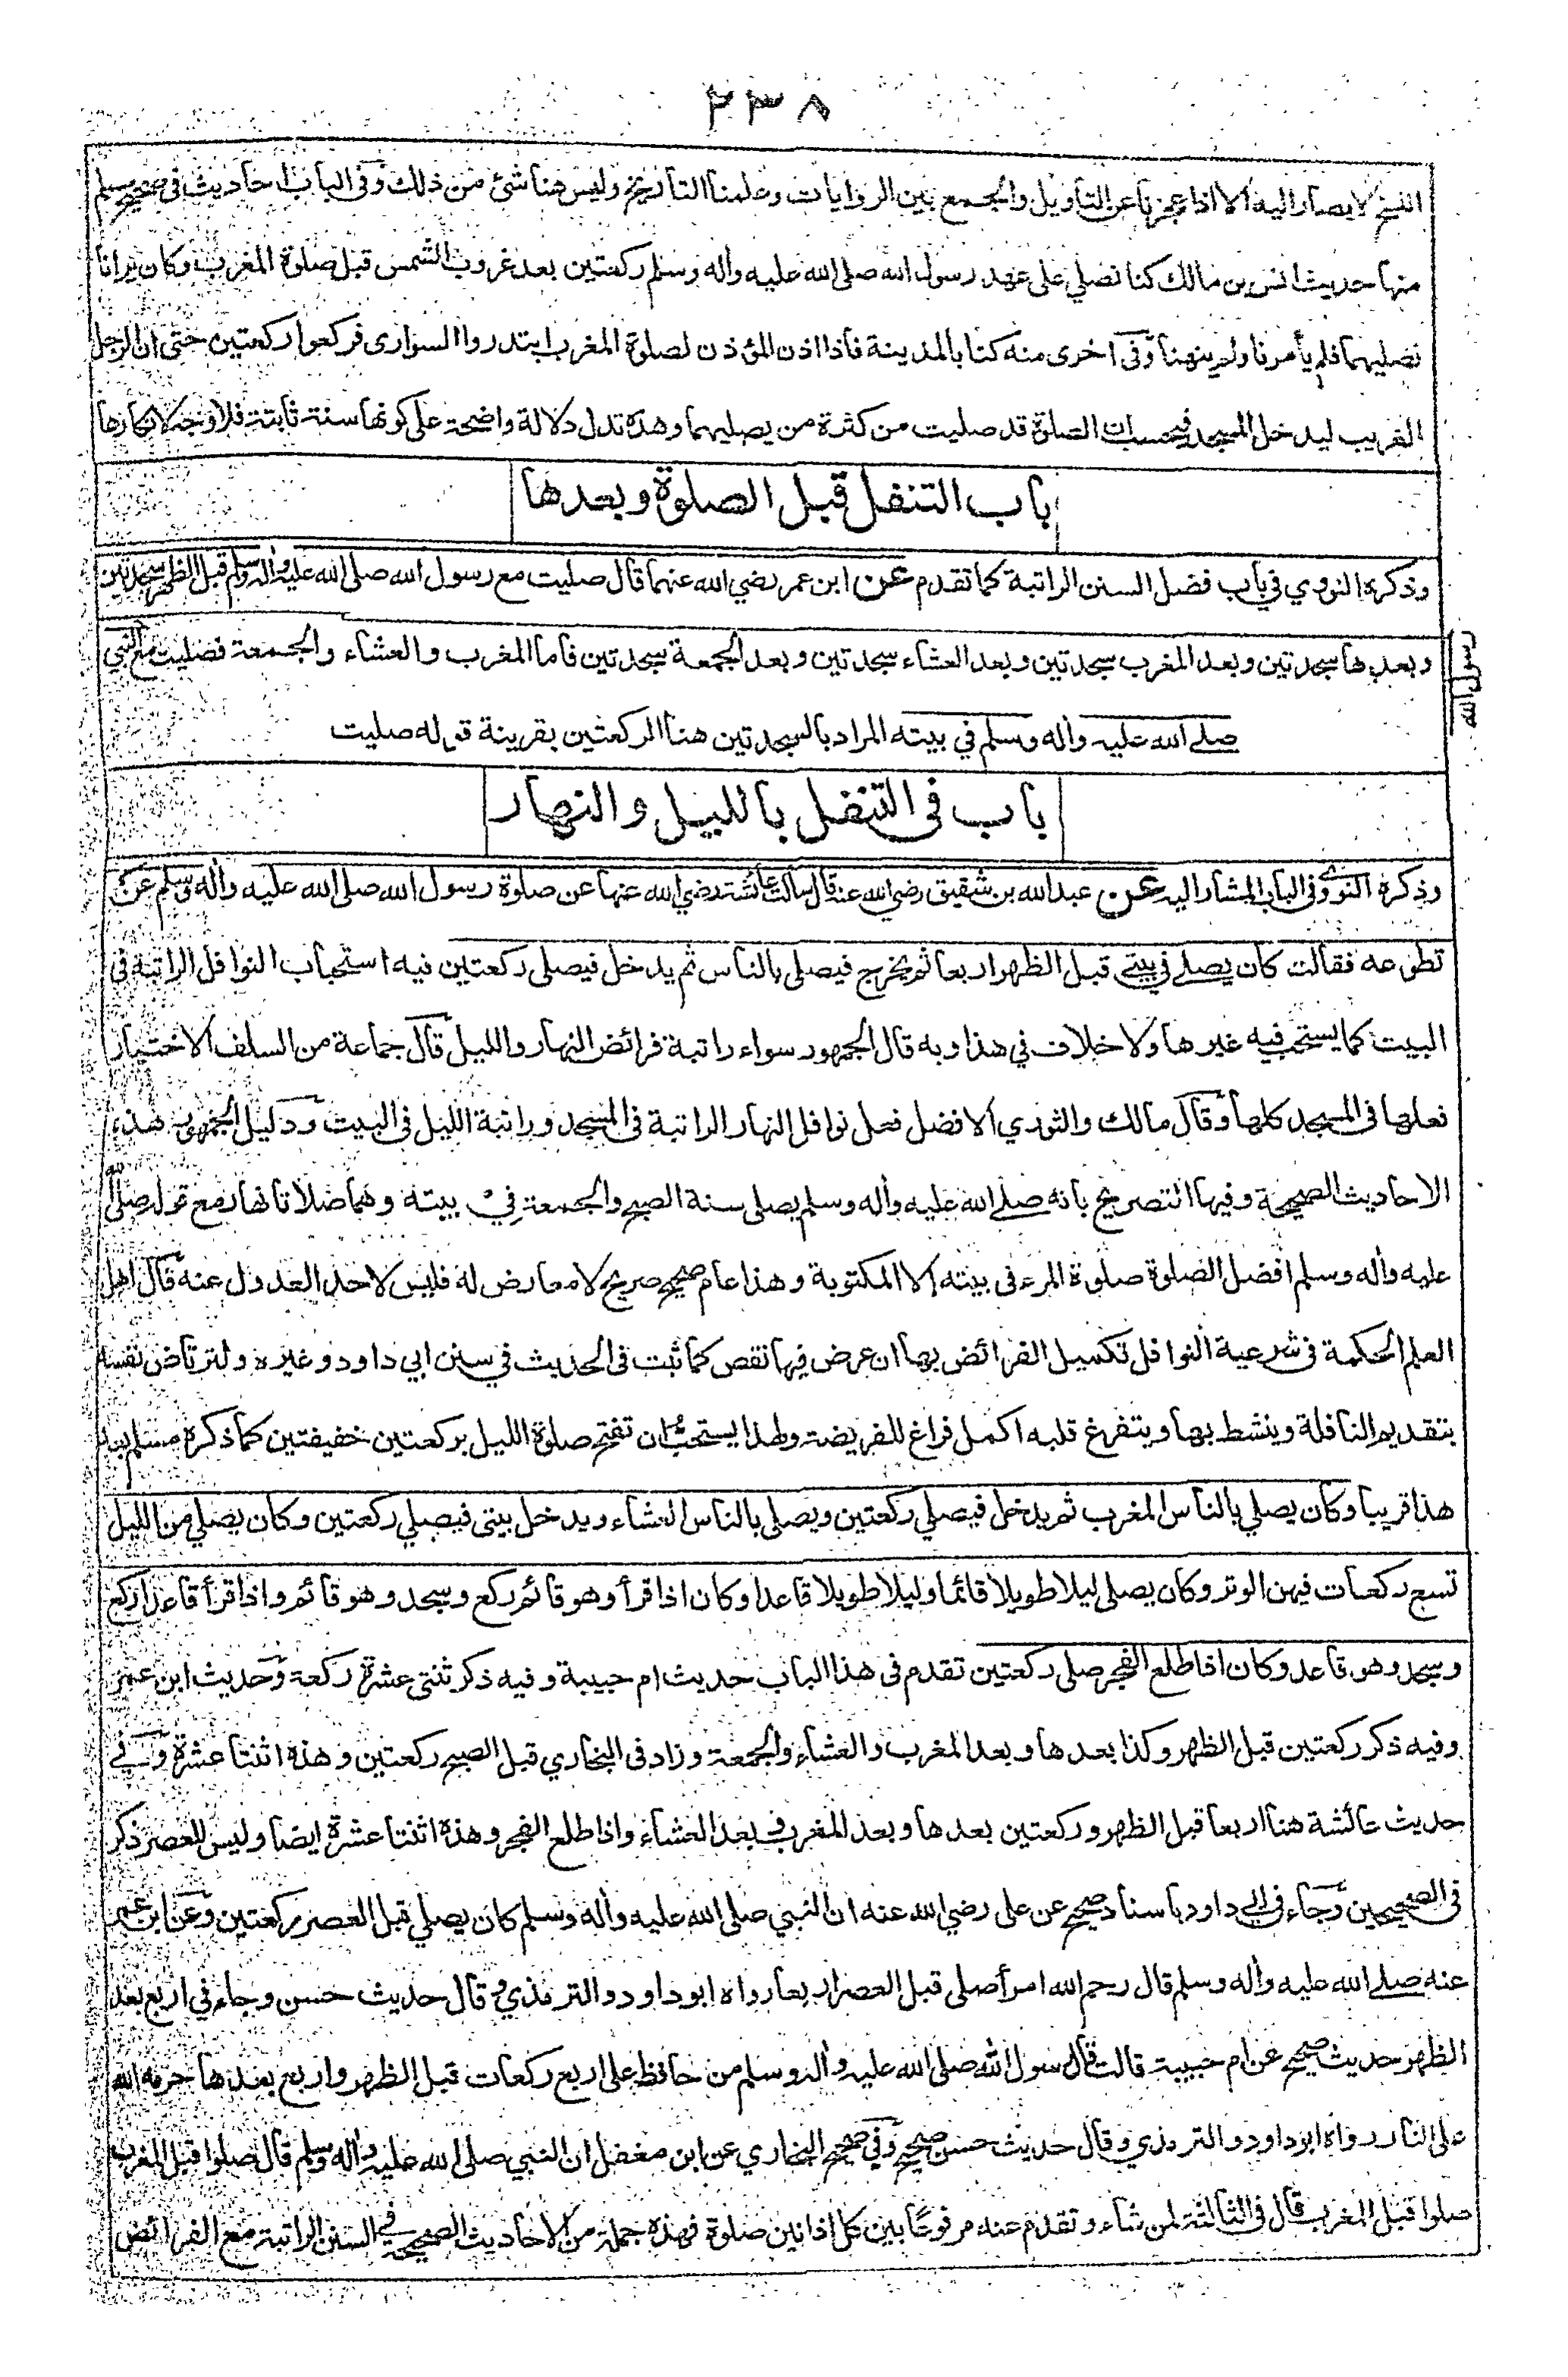 ٢٣٨
النسخ لا يصار اليه الا اذا عجزنا عن التاويل والجمع بين الروايات وعلمنا التاريخ وليس هنا شئ من ذلك وفى الباب احاديث فى صحيح مسلم
منها حديث انس بن مالك كنا نصلي على عهد رسول الله صلى الله عليه واله وسلم ركعتين بعد غروب الشمس قبل صلوة المغرب وكان يرانا
نصليهما فلم يأمرنا ولم ينهنا وفى اخرى منه كنا بالمدينة فاذا اذن المؤذن لصلوة المغرب ابتدروا السوارى فركعوا ركعتين حتى ان الرجل
الغريب ليدخل المسجد فيحسب ان الصلوة قد صليت من كثرة من يصليهما وهذه تدل دلالة واضحة على كونها سنة ثابتة فلا وجه لانكارها
باب التنفل قبل الصلوة وبعدها
وذكره النووي في باب فضل السنن الراتبة كما تقدم عن ابن عمر رضي الله عنهما قال صليت مع رسول الله صلى الله عليه واله وسلم قبل الظهر سجدتين
وبعدها سجدتين وبعد المغرب سجدتين وبعد العشاء سجدتين وبعد الجمعة سجدتين فاما المغرب والعشاء والجمعة فصليت مع النبي
رسول الله
صلے الله عليه واله وسلم في بيته المراد بالسجدتين هنا الركعتين بقرينة قوله صليت
باب فى التنفل بالليل والنهار
وذكره النووي فى الباب المشار اليه عن عبد الله بن شقيق رضي الله عنه قال سالت عائشة رضي الله عنها عن صلوة رسول الله صلى الله عليه واله وسلم عن
تطوعه فقالت كان يصلے في بيتي قبل الظهر اربعا ثم يخرج فيصلى بالناس ثم يدخل فيصلى ركعتين فيه استحباب النوافل الراتبة فى
البيت كما يستحب فيه غيرها ولا خلاف في هذا وبه قال الجمهور سواء راتبة فرائض النهار والليل قال جماعة من السلف الاختيار
فعلها فى المسجد كلها وقال مالك والثوري الافضل فعل نوافل النهار الراتبة فى المسجد وراتبة الليل فى البيت ودليل الجمهور هذه
الاحاديث الصحيحة وفيها التصريح بانه صلے الله عليه واله وسلم يصلى سنة الصبح والجمعة في بيته وهما صلاتا نهار مع قوله صلى الله
عليه واله وسلم افضل الصلوة صلوة المرء فى بيته الا المكتوبة وهذا عام صحيح صريح لا معارض له فليس لاحد العدول عنه قال اهل
العلم الحكمة فى شرعية النوافل تكميل الفرائض بها ان عرض فيها نقص كما ثبت فى الحديث في سنن ابي داود وغيره ولترتاض نفسه
بتقديم النافلة وينشط بها ويتفرغ قلبه اكمل فراغ للفريضة ولهذا يستحب ان تفتح صلوة الليل بركعتين خفيفتين كما ذكره مسلم بعد
هذا قريبا وكان يصلي بالناس المغرب ثم يدخل فيصلي ركعتين ويصلى بالناس العشاء ويدخل بيتى فيصلي ركعتين وكان يصلي من الليل
تسع ركعات فيهن الوتر وكان يصلى ليلا طويلا قائما وليلا طويلا قاعدا وكان اذا قرأ وهو قائم ركع وسجد وهو قائم واذا قرأ قاعدا ركع
وسجد وهو قاعد وكان اذا طلع الفجر صلى ركعتين تقدم فى هذا الباب حديث ام حبيبة وفيه ذكر ثنتى عشرة ركعة وحديث ابن عمر
وفيه ذكر ركعتين قبل الظهر وكذا بعدها وبعد المغرب والعشاء والجمعة وزاد فى البخاري قبل الصبح ركعتين وهذه اثنتا عشرة وفے
حديث عائشة هنا اربعا قبل الظهر وركعتين بعدها وبعد المغرب وبعد العشاء واذا طلع الفجر وهذه اثنتا عشرة ايضا وليس للعصر ذكر
فى الصحيحين وجاء فى ابي داود باسناد صحيح عن على رضي الله عنه ان النبي صلى الله عليه واله وسلم كان يصلي قبل العصر ركعتين وعن ابن عمر
عنه صلے الله عليه واله وسلم قال رحم الله امرأ صلى قبل العصر اربعا رواه ابو داود والترمذي وقال حديث حسن وجاء في اربع بعد
الظهر حديث صحيح عن ام حبيبة قالت قال رسول الله صلى الله عليه واله وسلم من حافظ على اربع ركعات قبل الظهر واربع بعدها حرمه الله
على النار رواه ابو داود والترمذي وقال حديث حسن صحيح وفي صحيح البخاري عن ابن مغفل ان النبي صلى الله عليه واله وسلم قال صلوا قبل المغرب
صلوا قبل المغرب قال فى الثالثة لمن شاء وتقدم عنه مرفوعا بين كل اذانين صلوة فهذه جملة من الاحاديث الصحيحة في السنن الراتبة مع الفرائض